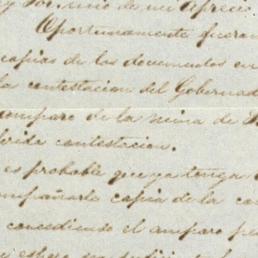 y Sor. mio de mi apreci
Oportunamente fueron
copias de los documentos en
la contestacion del Goberna
amparo de la Reina de
bide contestacion.
es probable que ya tenga
ompañarle copia de la co
concediendo el amparo pe